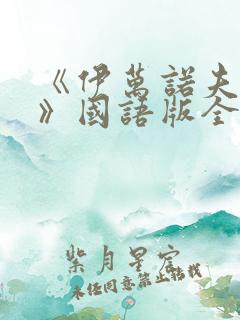 《伊萬諾夫
》國語版全
紫月星宿
未经同意禁止转载